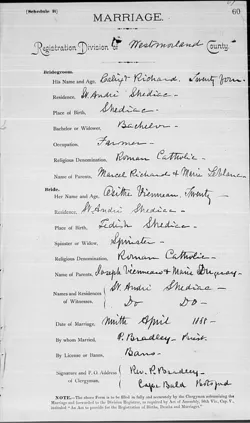 [Schedule B]
60
MARRIAGE.
Registration Division of Westmorland County.
Bridegroom.
His Name and Age, Calixt Richard. Twenty four
Residence, St. André Shediac -
Place of Birth, Shediac -
Bachelor or Widower, Bachelor -
Occupation, Farmer -
Religious Denomination, Roman Catholic -
Name of Parents, Marcel Richard & Marie Leblanc
Bride.
Her Name and Age, Vienneau, Twenty
Residence, St. André Shediac -
Place of Birth, Shediac -
Spinster or Widow, Spinster -
Religious Denomination, Roman Catholic -
Name of Parents, Joseph Vienneau & Marie Duguay -
Names and Residences of Witnesses. St. André Shediac -
Do DO -
Date of Marriage, April
By whom Married, P. Bradley - Priest.
By License or Banns, Bans -
Signature and P. O. Address of Clergyman, Rev. P. Bradley -
Cape Bald Botsford
NOTE.—The above Form is to be filled in fully and accurately by the Clergyman solemnizing the
Marriage and forwarded to the Division Registrar, as required by Act of Assembly, 50th Vic., Cap. 5,
intituled "An Act to provide for the Registration of Births, Deaths and Marriages."